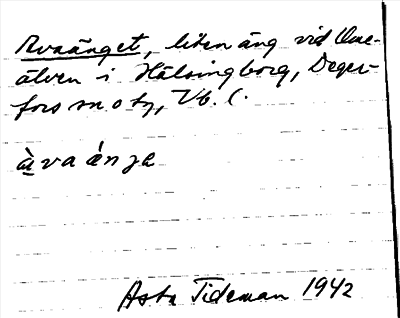 Avaänget, liten äng vid Ume-
älven i Hälsingborg, Deger-
fors
àvaánʒe
Asta Tideman 1942